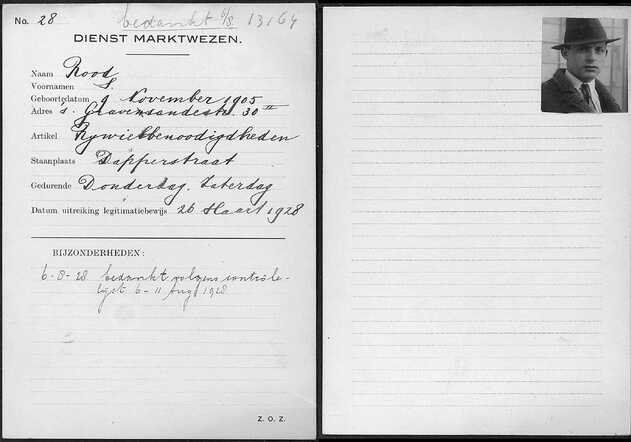 No. 28 bedankt 6/8 13164
DIENST MARKTWEZEN.
Naam Rood
Voornamen S.
Geboortedatum 9 November 1905
Adres 's Gravensandestr. 30 II
Artikel Rywielbenoodigdheden
Staanplaats Dapperstraat
Gedurende Donderdag. Zaterdag
Datum uitreiking legitimatiebewijs 26 Maart 1928
BIJZONDERHEDEN:
6-8-28 bedankt volgens contrôle-
lijst 6-11 Aug. 1928
Z. O. Z.